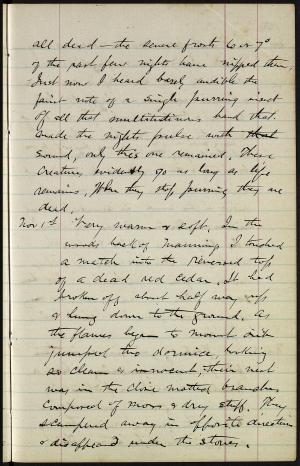 all dead — the severe frosts 6 or 7°
of the past few nights have nipped them.
Just now I heard barely audible the
faint note of a single purring insect
of all that multitudinous band that
made the nights pulse with that
sound, only this one remained. These
creatures evidently go as long as life
remains. When they stop purring they are
dead.
Nov 1st Very warm & soft. In the
woods back of Manning I touched
a match into the reversed top
of a dead red cedar. It had
broken off about half way up
& hung down to the ground. As
the flames began to mount out
jumped two dormice looking
as clean & innocent, their nest
was in the close matted branches
composed of moss & dry stuff. They
scampered away in opposite directions
& disappeared under the stones.